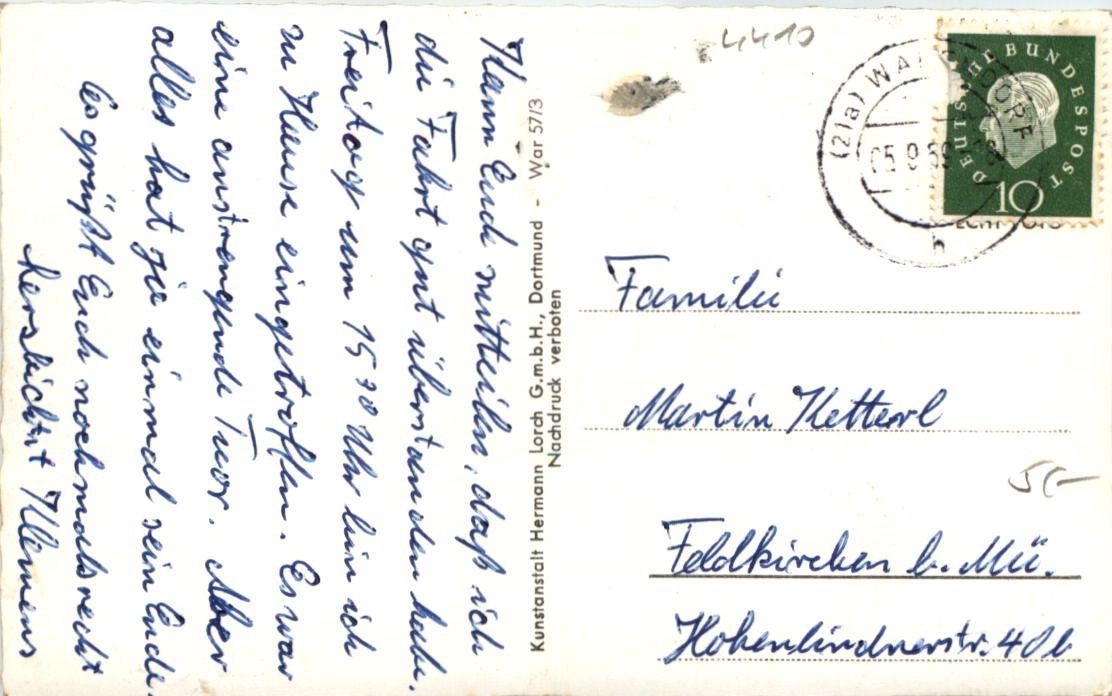 Kann Euch mitteilen, daß ich
die Fahrt gut überstanden habe.
Freitag um 15 30 Uhr bin ich
zu Hause eingetroffen. Es war
eine anstrengende Tour. Aber
alles hat ja einmal sein Ende.
Es grüßt Euch nochmals recht
herzlichst Klemens
Kunstanstalt Hermann Lorch G.m.b.H., Dortmund - War 57/3
Nachdruck verboten
4410
(21a)
05.9.59
h
DEUTSCHE BUNDESPOST
10
Familie
Martin Ketterl
Feldkirchen b. Mü.
Hohenlindnerstr. 40b